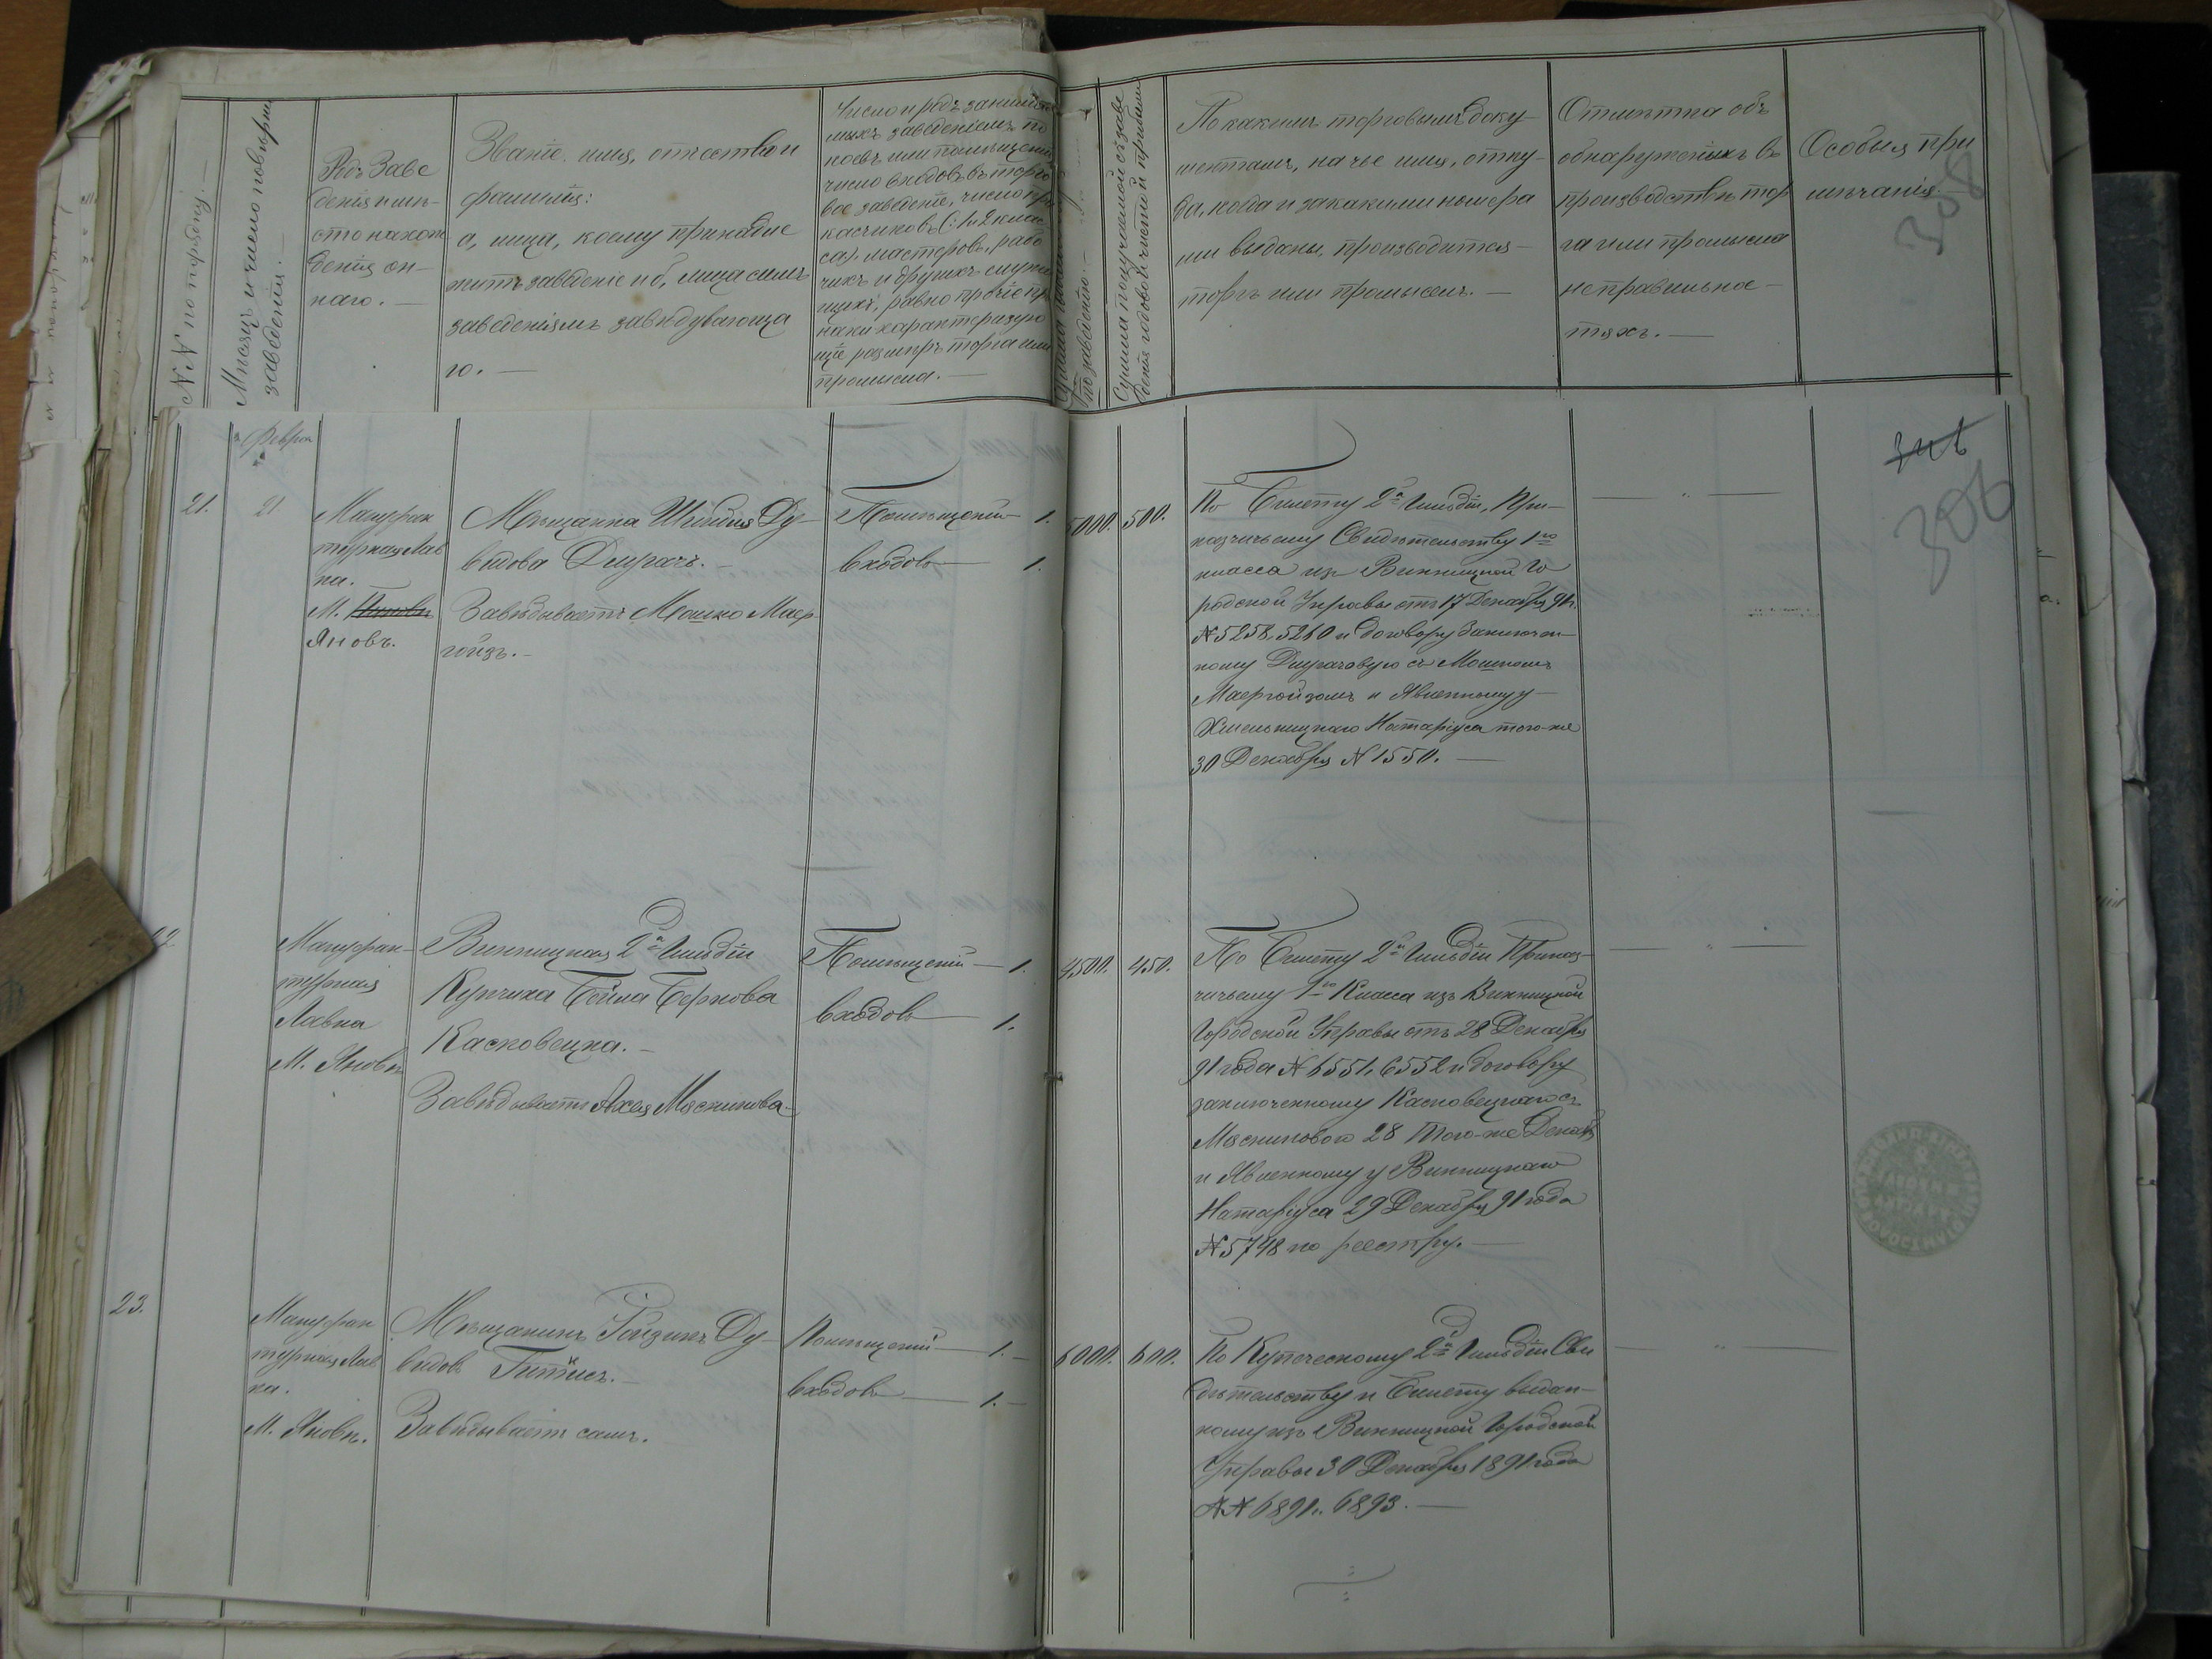 №№ по порядку.—
Мѣсяцъ и число повѣрки
заведенія.—
Родъ Заве
денія и мѣ-
сто нахож
денія он-
наго.—
Званіе, имя, отчество и
фамилія:
а, лица, коему принадле
житъ заведеніе и б, лица симъ
заведеніямъ завѣдувающа
го.—
Число и родъ занимае
мыхъ заведеніемъ по
коевъ или помѣщеній
число входовъ въ торго
вое заведеніе, число при
касчиковъ (1 и 2 клас
са), мастеровъ, рабо
чихъ и другихъ служа
щихъ, равно прочіе при
знаки характеризую
щіе размѣръ торга или
промысла.—
по заведенію.—
Сумма получаемой съ заве
денія годовой чистой прибыли
По какимъ торговымъ доку-
ментамъ, на чье имя, отку-
да, когда и за какими номера
ми выданы, производится—
торгъ или промыселъ.—
Отмѣтка объ
обнаруженіяхъ въ
производствѣ тор
га или промысла
неправильно—
стяхъ.—
Особыя при
мѣчанія.
308
306
Февра
21.
21
Мануфак
турная Лав
ка.
М.
Яновъ.
Мѣщанка Ду-
видова Дмухачъ.—
Завѣдываетъ Мошко Маер-
гойзъ.—
Помѣщеній— 1.
входовъ— 1.
5000. 500.
По Билету 2й Гильдіи, При-
казчичьему Свидѣтельству 1го
класса изъ Винницкой Го
родской Управы отъ 17 Декабря 91 г.
№ 5258, 5260 и договору Заключен-
ному съ Мошкомъ
Маергойзомъ и Явленному у—
Хмельницкаго Натаріуса того-же
30 Декабря № 1550.—
Мануфак-
турная
Лавка
М. Яновъ
Винницкая 2й Гильдіи
Купчиха Бейла Беркова
Касковецка.—
Завѣдываетъ Мясникова—
Помѣщеній— 1.
входовъ— 1.
4500. 450.
По Билету 2й Гильдіи Приказ-
чичьему 1го Класса изъ Винницкой
Городской Управы отъ 28 Декабря
91 года № 6551, 6552 и договору
заключенному Касковецкаго съ
Мясниковою 28 Того-же Декаб
и Явленному у Винницкаго
Натаріуса 29 Декабря 91 года
№ 5748 по реестру.—
23.
Мануфак
турная Лав
ка.
М. Яновъ.
Мѣщанинъ Гойзикъ Ду-
видовъ Гитисъ.—
Завѣдываетъ самъ.
Помѣщеній— 1.—
входовъ— 1.—
6000. 600.
По Купеческому 2й Гильдіи Сви
дѣтельству и Билету выдан-
ному изъ Винницкой Городской
Управы 30 Декабря 1891 года
№№ 6891, 6893.—